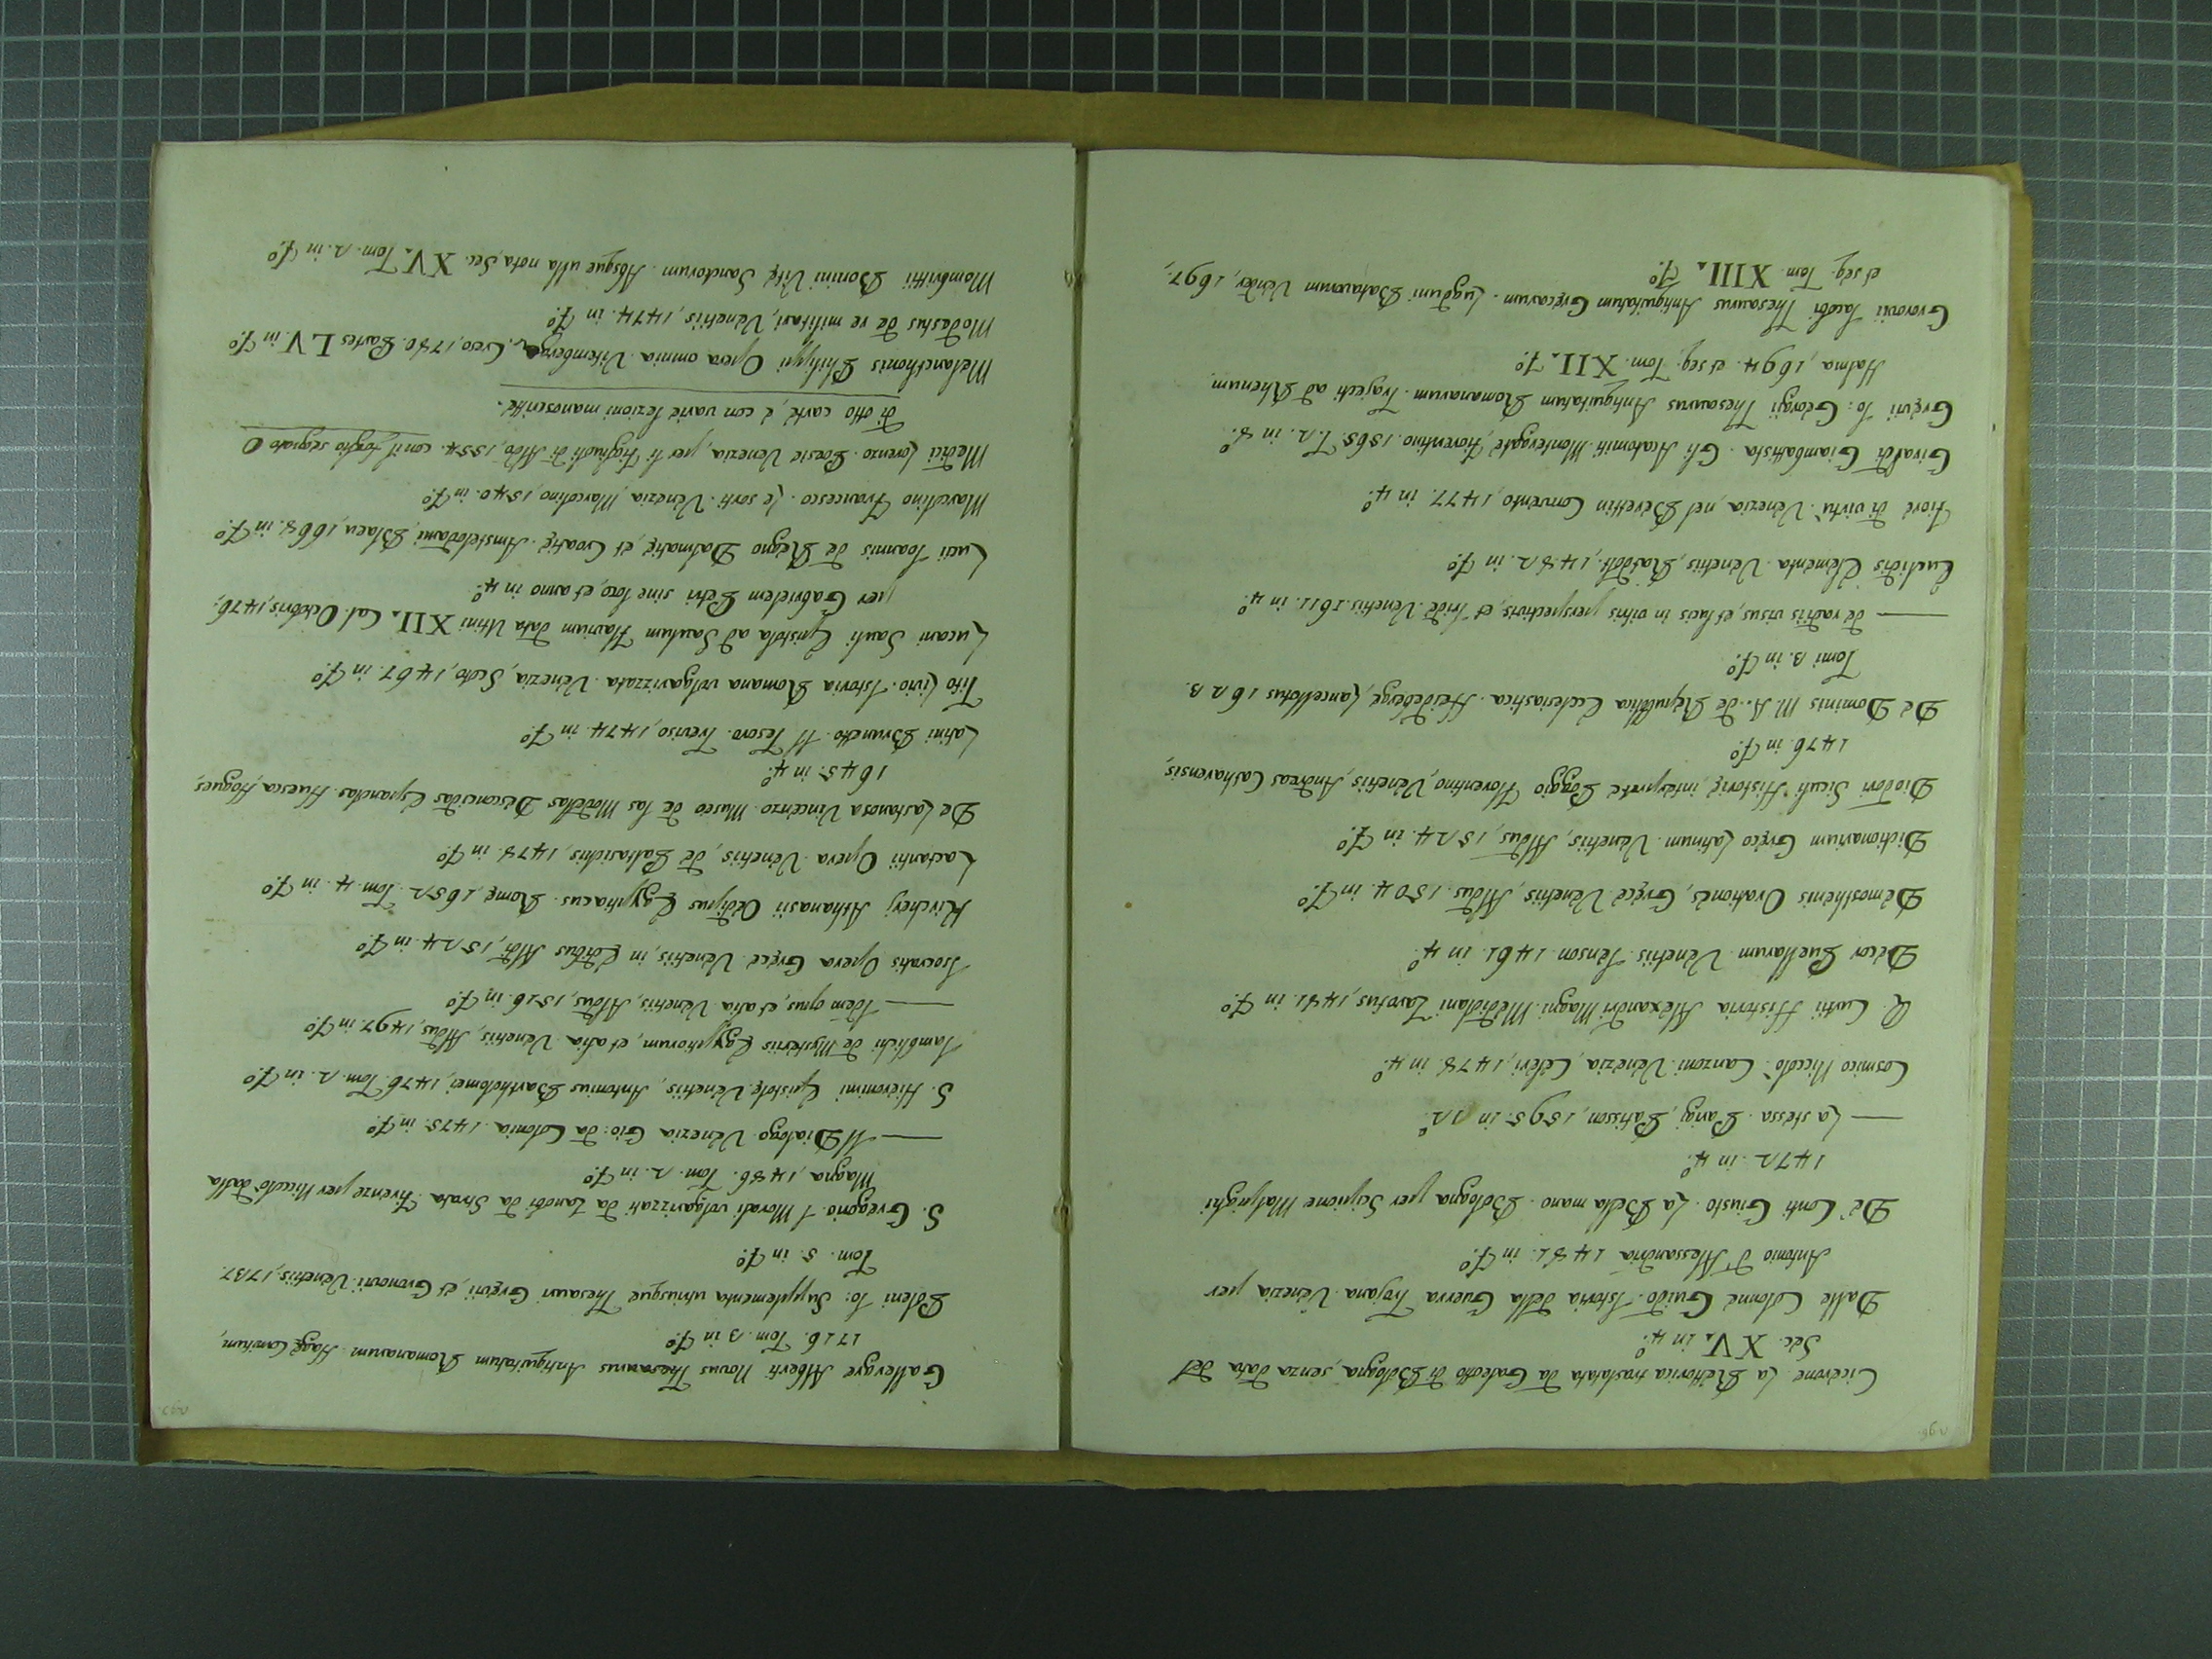 Cicerone La Rettorica traslatata da Galeotto di Bologna, senza data del
Sec. XV. in 4.º
Dalle Colonne Guido. Istoria della Guerra Trojana. Venezia per
Antonio d'Alessandria 1481. in F.º
De' Conti Giusto. La Bella mano. Bologna per Scipione Malpighi
1472. in 4.º
—— La stessa. Parigi, Patisson, 1595. in 12.º
Cosmico Niccolò. Canzoni. Venezia, Celeri, 1478. in 4.º
Q. Curtii Historia Alexandri Magni. Mediolani Zarotus, 1481. in F.º
Decor Puellarum. Venetiis. Jenson. 1461. in 4.º
Demosthenis Orationes, Gręcè. Venetiis, Aldus. 1504. in F.º
Dictionarium Gręco Latinum. Venetiis, Aldus, 1524. in F.º
Diodori Siculi Historię interprete Poggio Florentino, Venetiis, Andreas Catharensis,
1476. in F.º
De Dominis M. A. de Republica Ecclesiastica. Heidelbergę, Lancellotus 1623.
Tomi 3. in F.º
—— de radiis visus, et lucis in vitris perspectivis, et Iride. Venetiis. 1611. in 4.º
Euclidis Elementa. Venetiis, Ratdolt, 1482. in F.º
Fiore di virtù. Venezia, nel Berettin Convento, 1477. in 4.º
Giraldi Giambattista. Gli Hecatomiti. Monteregale, Fiorentino. 1565. T. 2. in 8.º
Gręvii Io: Georgii Thesaurus Antiquitatum Romanarum. Trajecti ad Rhenum.
Halma, 1694. et seg. Tom. XII. F.º
Gronovii Iacobi Thesaurus Antiquitatum Gręcarum. Lugduni Batavorum Vander, 1697.,
et seg. Tom. XIII. F.º
Gallengre Alberti Novus Thesaurus Antiquitatum Romanarum. Hagę Comitum,
1716. Tom. 3 in F.º
Poleni Io: Supplementa utriusque Thesauri Gręvii, et Gronovii. Venetiis, 1737.
Tom. 5. in F.º
S. Gregorio. I Morali volgarizzati da Zanobi da Strata. Firenze per Niccolò dalla
Magna, 1486. Tom. 2. in F.º
—— Il Dialogo. Venezia Gio: da Colonia. 1475. in F.º
S. Hieronimi Epistolę. Venetiis, Antonius Bartholomei, 1476. Tom. 2. in F.º
Iamblichi de Mysteriis Egyptiorum, et alia. Venetiis, Aldus, 1497. in F.º
—— Idem opus, et alia. Venetiis, Aldus, 1516. in F.º
Isocratis Opera Gręcè. Venetiis, in Ędibus Aldi, 1524. in F.º
Kircherj Athanasii Oedipus Ęgyptiacus. Romę, 1652. Tom. 4. in F.º
Lactantii Opera. Venetiis, de Paltasichis, 1478. in F.º
De Lastanosa Vincenzo. Museo de las Medallas Desconocidas Espanolas. Huesca, Nogues,
1645. in 4.º
Latini Brunetto. Il Tesoro. Treviso, 1474. in F.º
Tito Livio. Istoria Romana volgarizzata. Venezia, Scoto, 1467. in F.º
Lucani Pauli Epistola ad Paulum Flavium data Utini XII. Cal. Octobris, 1476.,
per Gabrielem Petri sine loco, et anno in 4.º
Lucii Ioannis de Regno Dalmatię, et Croatię. Amstelodami, Blaeu, 1668. in F.º
Marcolino Francesco. Le sorti. Venezia, Marcolino, 1540. in F.º
Medici Lorenzo. Poesie Venezia, per li Figliuoli di Aldo, 1554. con il foglio segnato O
di otto carte, e con varie lezioni manoscritte.
Melancthonis Philippi Opera omnia. Vitembergę, 1780. Partes LV. in F.º
Modestus de re militari, Venetiis, 1474. in F.º
Mombrittii Bonini Vitę Sanctorum. Absque ulla nota, Sec. XV. Tom. 2. in F.º